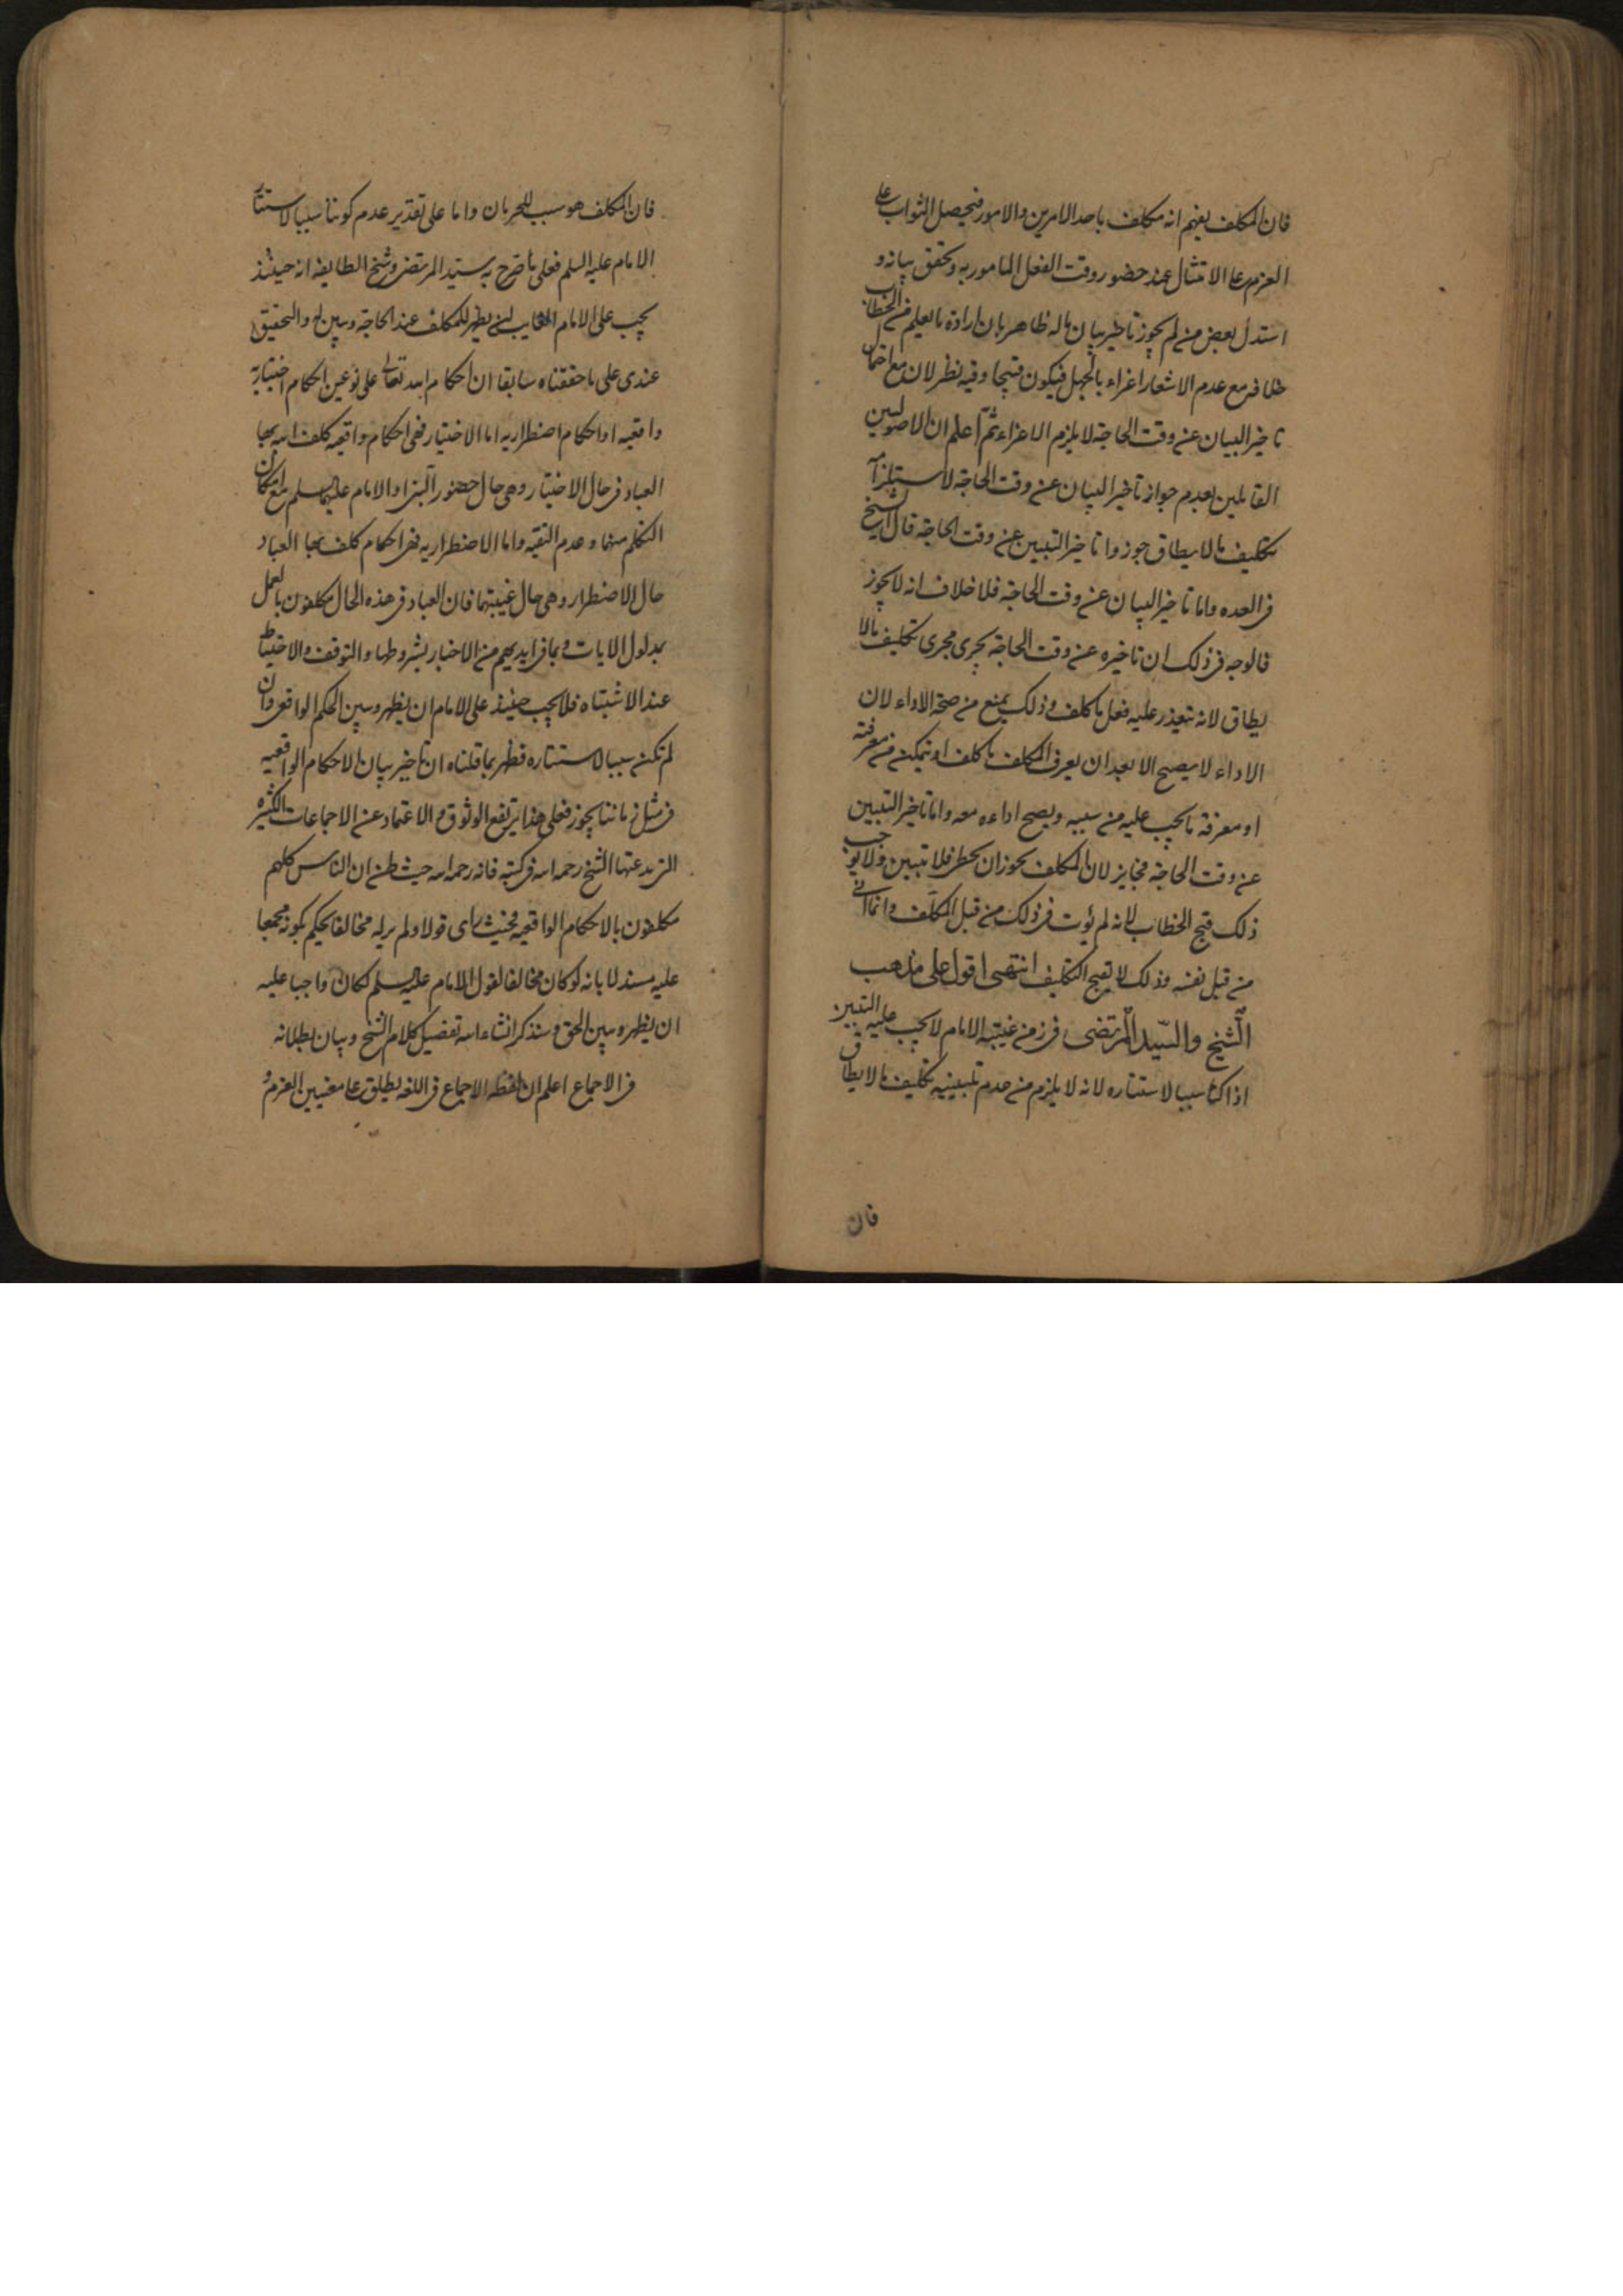 فان المكلف يفهم انه مكلف باحد الامرين والامور فيحصل الثواب على
العزم على الامتثال عند حضور وقت الفعل المامور به وتحقق بيانه و
استدل بعض من لم يجوز تاخير بيان ماله ظاهر بان ارادة ما يعلم من الخطاب
خلافه مع عدم الاشعار اغراء بالجهل فيكون قبيحا وفيه نظر لان مع احتمال
تاخير البيان عن وقت الحاجة لا يلزم الاغراء ثم اعلم ان الاصوليين
القايلين بعدم جواز تاخير البيان عن وقت الحاجة لاستلزامه
تكليف مالا يطاق جوزوا تاخير التبيين عن وقت الحاجة قال الشيخ
في العده واما تاخير البيان عن وقت الحاجة فلا خلاف انه لا يجوز
فالوجه في ذلك ان تاخيره عن وقت الحاجة يجري مجرى تكليف مالا
يطاق لانه يتعذر عليه فعل ما كلف وذلك يمنع من صحة الاداء لان
الاداء لا يصح الا بعد ان يعرف المكلف ما كلف او يتمكن من معرفته
او معرفة ما يجب عليه من سببه ويصح اداءه معه واما تاخير التبيين
عن وقت الحاجة فجايز لان المكلف يجوز ان يخطر فلا تبيين ولا يوجب
ذلك قبح الخطاب لانه لم يؤت في ذلك من قبل المكلف وانما اتى
من قبل نفسه وذلك لا يقبح التكليف انتهى اقول على مذهب
الشيخ والسيد المرتضى في زمن غيبة الامام لا يجب عليه التبيين
اذا كنا سببا لاستتاره لانه لا يلزم من عدم تبيينه تكليف مالا يطاق
فان
فان المكلف هو سبب للحرمان واما على تقدير عدم كوننا سببا لاستتار
الامام عليه السلم فعلى ما صرح به سيد المرتضى وشيخ الطايفه انه حينئذ
يجب على الامام الغايب ان يظهر للمكلف عند الحاجة ويبين له والتحقيق
عندي على ما حققناه سابقا ان احكام الله تعالى على نوعين احكام اختيارية
واقعيه او احكام اضطراريه اما الاختيار ففى احكام واقعيه كلف الله بها
العباد في حال الاختيار وهى حال حضور النبي او الامام عليهما السلم مع امكان
التكلم منهما وعدم التقيه واما الاضطراريه فهى احكام كلف بها العباد
حال الاضطرار وهى حال غيبتهما فان العباد في هذه الحال مكلفون بالعمل
بمدلول الايات وبما في ايديهم من الاخبار بشروطها والتوقف والاحتياط
عند الاشتباه فلا يجب حينئذ على الامام ان يظهر ويبين الحكم الواقعى وان
لم نكن سببا لاستتاره فظهر بما قلناه ان تاخير بيان الاحكام الواقعيه
في مثل زماننا يجوز فعلى هذا يرتفع الوثوق والاعتماد عن الاجماعات الكثيره
التي يدعيها الشيخ رحمه الله في كتبه فانه رحمه الله حيث ظن ان الناس كلهم
مكلفون بالاحكام الواقعيه فحيث راى قولا ولم ير له مخالفا يحكم بكونه مجمعا
عليه مستدلا بانه لو كان مخالفا لقول الامام عليه السلم لكان واجبا عليه
ان يظهر ويبين الحق وسنذكر انشاء الله تفصيل كلام الشيخ وبيان بطلانه
في الاجماع اعلم ان لفظه الاجماع في اللغه يطلق على معنيين العزم و